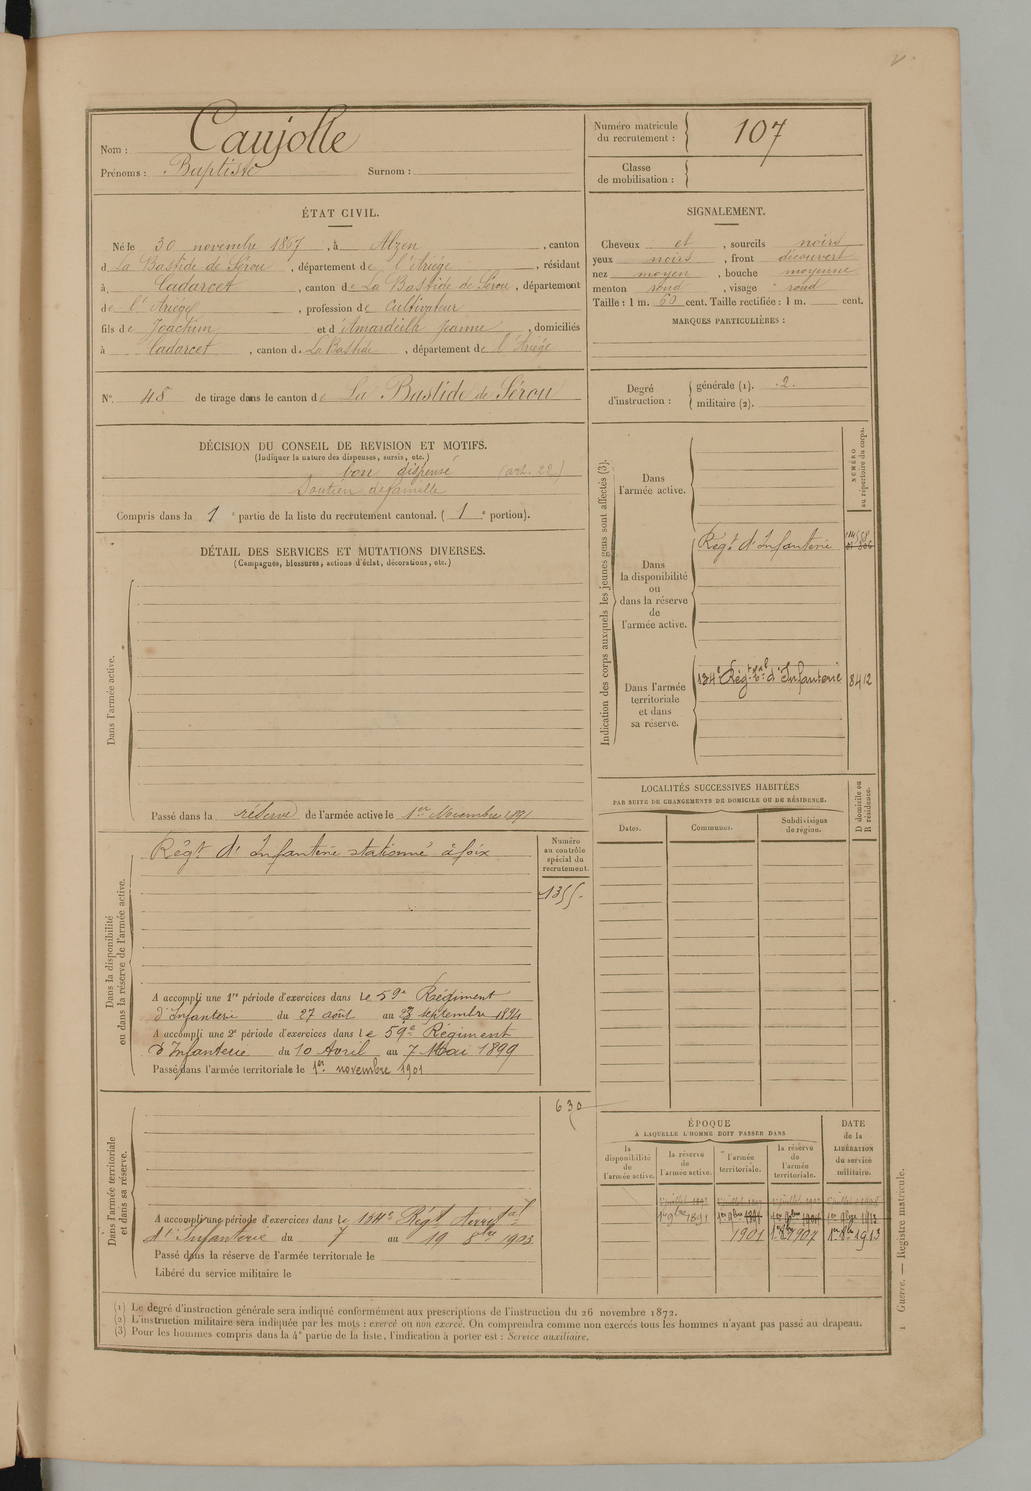 Nom : Caujolle
Prénoms : Baptiste Surnom :
Numéro matricule du recrutement : 107
Classe de mobilisation :
ÉTAT CIVIL.
Né le 30 novembre 1867, à Alzen, canton
d La Bastide de Sérou, département de l'Ariége, résidant
à Cadarcet, canton de La Bastide de Sérou, département
de l'Ariége, profession de Cultivateur
fils de Joachim et d'Amardeilh Jeanne, domiciliés
à Cadarcet, canton de La Bastide, département de l'Ariége
N° 48 de tirage dans le canton de La Bastide de Sérou
SIGNALEMENT.
Cheveux et, sourcils noirs
yeux noirs, front découvert
nez moyen, bouche moyenne
menton rond, visage rond
Taille : 1 m. 60 cent. Taille rectifiée : 1 m. cent.
MARQUES PARTICULIÈRES :
Degré d'instruction : générale (1). 2.
militaire (2).
DÉCISION DU CONSEIL DE REVISION ET MOTIFS.
(Indiquer la nature des dispenses, sursis, etc.)
bon dispensé (art. 22)
Soutien de famille
Compris dans la 1e partie de la liste du recrutement cantonal. ( 1e portion).
DÉTAIL DES SERVICES ET MUTATIONS DIVERSES.
(Campagnes, blessures, actions d'éclat, décorations, etc.)
Dans l'armée active.
Passé dans la réserve de l'armée active le 1er Novembre 1891
Indication des corps auxquels les jeunes gens sont affectés (3).
NUMÉRO au répertoire du corps.
Dans l'armée active.
Dans la disponibilité ou dans la réserve de l'armée active.
Régt d'Infanterie
Dans l'armée territoriale et dans sa réserve.
134e Régt tal d'Infanterie 8412
LOCALITÉS SUCCESSIVES HABITÉES
PAR SUITE DE CHANGEMENTS DE DOMICILE OU DE RÉSIDENCE.
D domicile ou R résidence.
Dates. Communes. Subdivisions de région.
Dans la disponibilité ou dans la réserve de l'armée active.
Régt d'Infanterie stationné à foix
Numéro au contrôle spécial du recrutement.
1355.
A accompli une 1re période d'exercices dans le 59e Régiment
d'Infanterie du 27 août au 23 septembre 1894
A accompli une 2e période d'exercices dans le 59e Régiment
d'Infanterie du 10 Avril au 7 Mai 1899
Passé dans l'armée territoriale le 1er novembre 1901
Dans l'armée territoriale et dans sa réserve.
630
A accompli une période d'exercices dans le 134e Régt Territal
d'Infanterie du 7 au 19 8bre 1903
Passé dans la réserve de l'armée territoriale le
Libéré du service militaire le
ÉPOQUE
À LAQUELLE L'HOMME DOIT PASSER DANS
la disponibilité de l'armée active.
la réserve de l'armée active.
l'armée territoriale.
la réserve de l'armée territoriale.
DATE de la LIBÉRATION du service militaire.
1er 9bre 1891
1901
1907
1913
(1) Le degré d'instruction générale sera indiqué conformément aux prescriptions de l'instruction du 26 novembre 1872.
(2) L'instruction militaire sera indiquée par les mots : exercé ou non exercé. On comprendra comme non exercés tous les hommes n'ayant pas passé au drapeau.
(3) Pour les hommes compris dans la 4e partie de la liste, l'indication à porter est : Service auxiliaire.
1 Guerre. — Registre matricule.